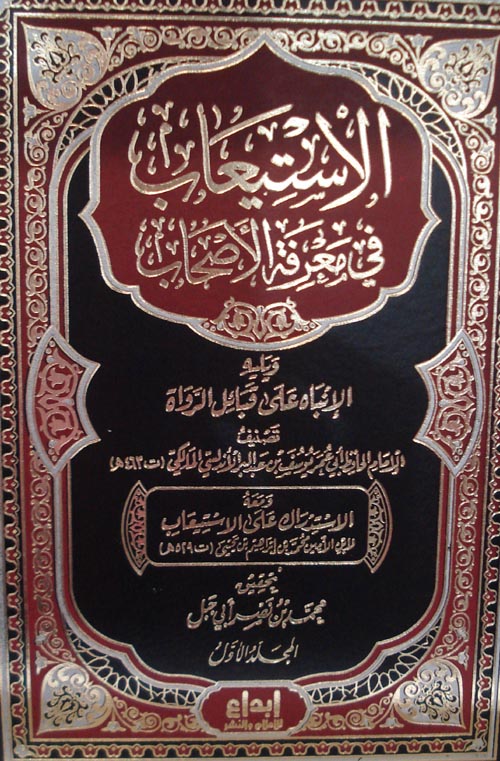 الاستيعاب
في معرفة الأصحاب
ويليه
الإنباه على قبائل الرواة
تصنيف
الإمام الحافظ أبي عمر يوسف بن عبد البر الأندلسي المالكي (ت ٤٦٣ هـ)
ومعه
الاستدراك على الاستيعاب
محمد بن إبراهيم بن يحيى (ت ٥٢٩ هـ)
تحقيق
محمد بن نصر أبي جبل
المجلد الأول
إبداع
للإعلام والنشر